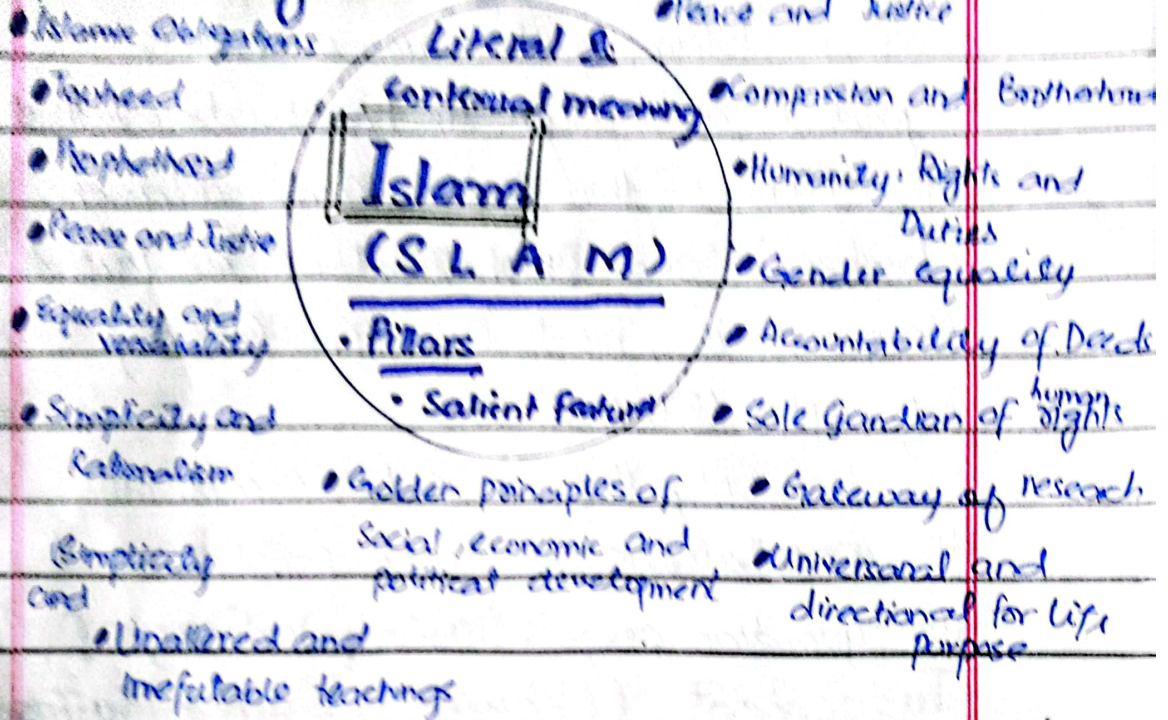 • Islamic Obligations
• Tauheed
• Prophethood
• Peace and Justice
• Equality and
• Simplicity and
Rationalism
Simplicity
and
• Unaltered and
Irrefutable teachings
Literal &
contexual meaning
Islam
(S L A M)
• Pillars
• Salient features
• Golden principles of
Social, economic and
political development
• Peace and Justice
• Compassion and
• Humanity, Rights and
Duties
• Gender equality
• Accountability of Deeds
• Sole Gardian of human
rights
• Gateway of reseach
• Universanal and
directional for life
purpose